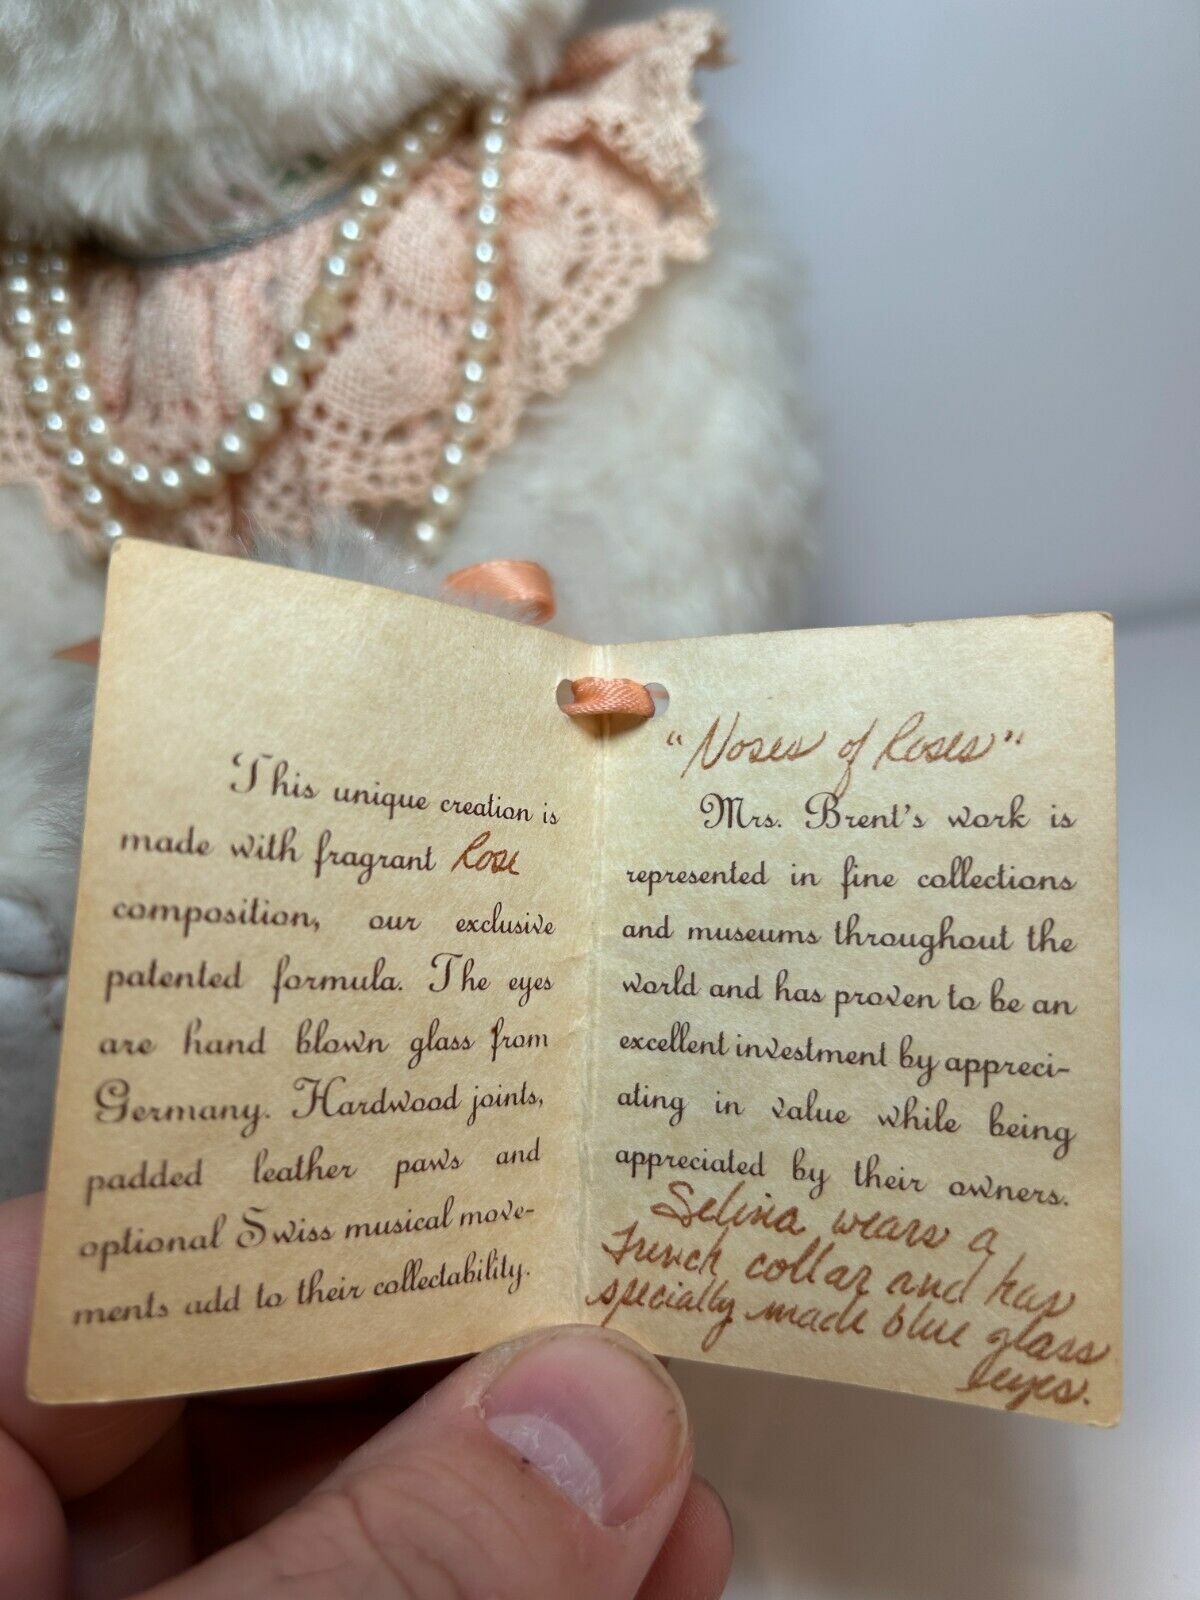 This unique creation is
made with fragrant Rose
composition, our exclusive
patented formula. The eyes
are hand blown glass from
Germany. Hardwood joints,
padded leather paws and
optional Swiss musical move-
ments add to their collectability.
"Noses of Roses"
Mrs. Brent's work is
represented in fine collections
and museums throughout the
world and has proven to be an
excellent investment by appreci-
ating in value while being
appreciated by their owners.
Selina wears a
French collar and has
specially made blue glass
eyes.